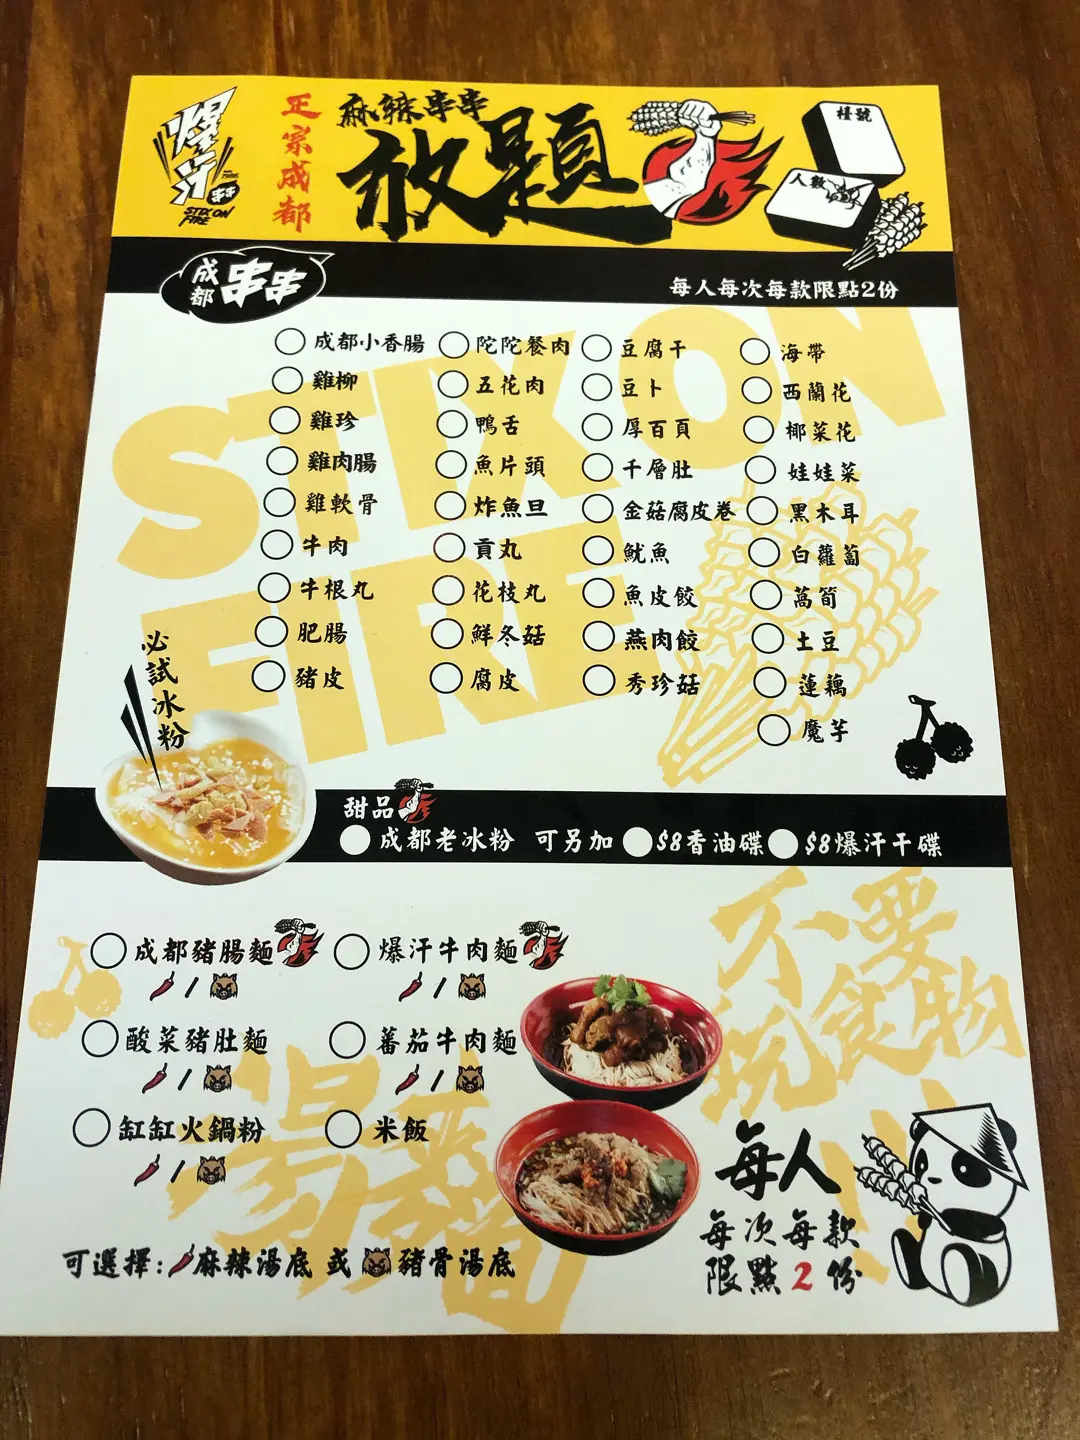 爆汗
串串
STIX ON
FIRE
正宗成都
麻辣串串
放題
檯號
人數
成都串串
每人每次每款限點2份
成都小香腸 陀陀餐肉 豆腐干 海帶
雞柳 五花肉 豆卜 西蘭花
雞珍 鴨舌 厚百頁 椰菜花
雞肉腸 魚片頭 千層肚 娃娃菜
雞軟骨 炸魚旦 金菇腐皮卷 黑木耳
牛肉 貢丸 魷魚 白蘿蔔
牛根丸 花枝丸 魚皮餃 萵筍
肥腸 鮮冬菇 燕肉餃 土豆
豬皮 腐皮 秀珍菇 蓮藕
魔芋
STIX ON
FIRE
必試冰粉
甜品
成都老冰粉 可另加 $8香油碟 $8爆汗干碟
成都豬腸麵 爆汗牛肉麵
/ /
酸菜豬肚麵 蕃茄牛肉麵
/ /
缸缸火鍋粉 米飯
/
不要
玩食物
每人
每次每款
限點2份
可選擇:麻辣湯底 或 豬骨湯底